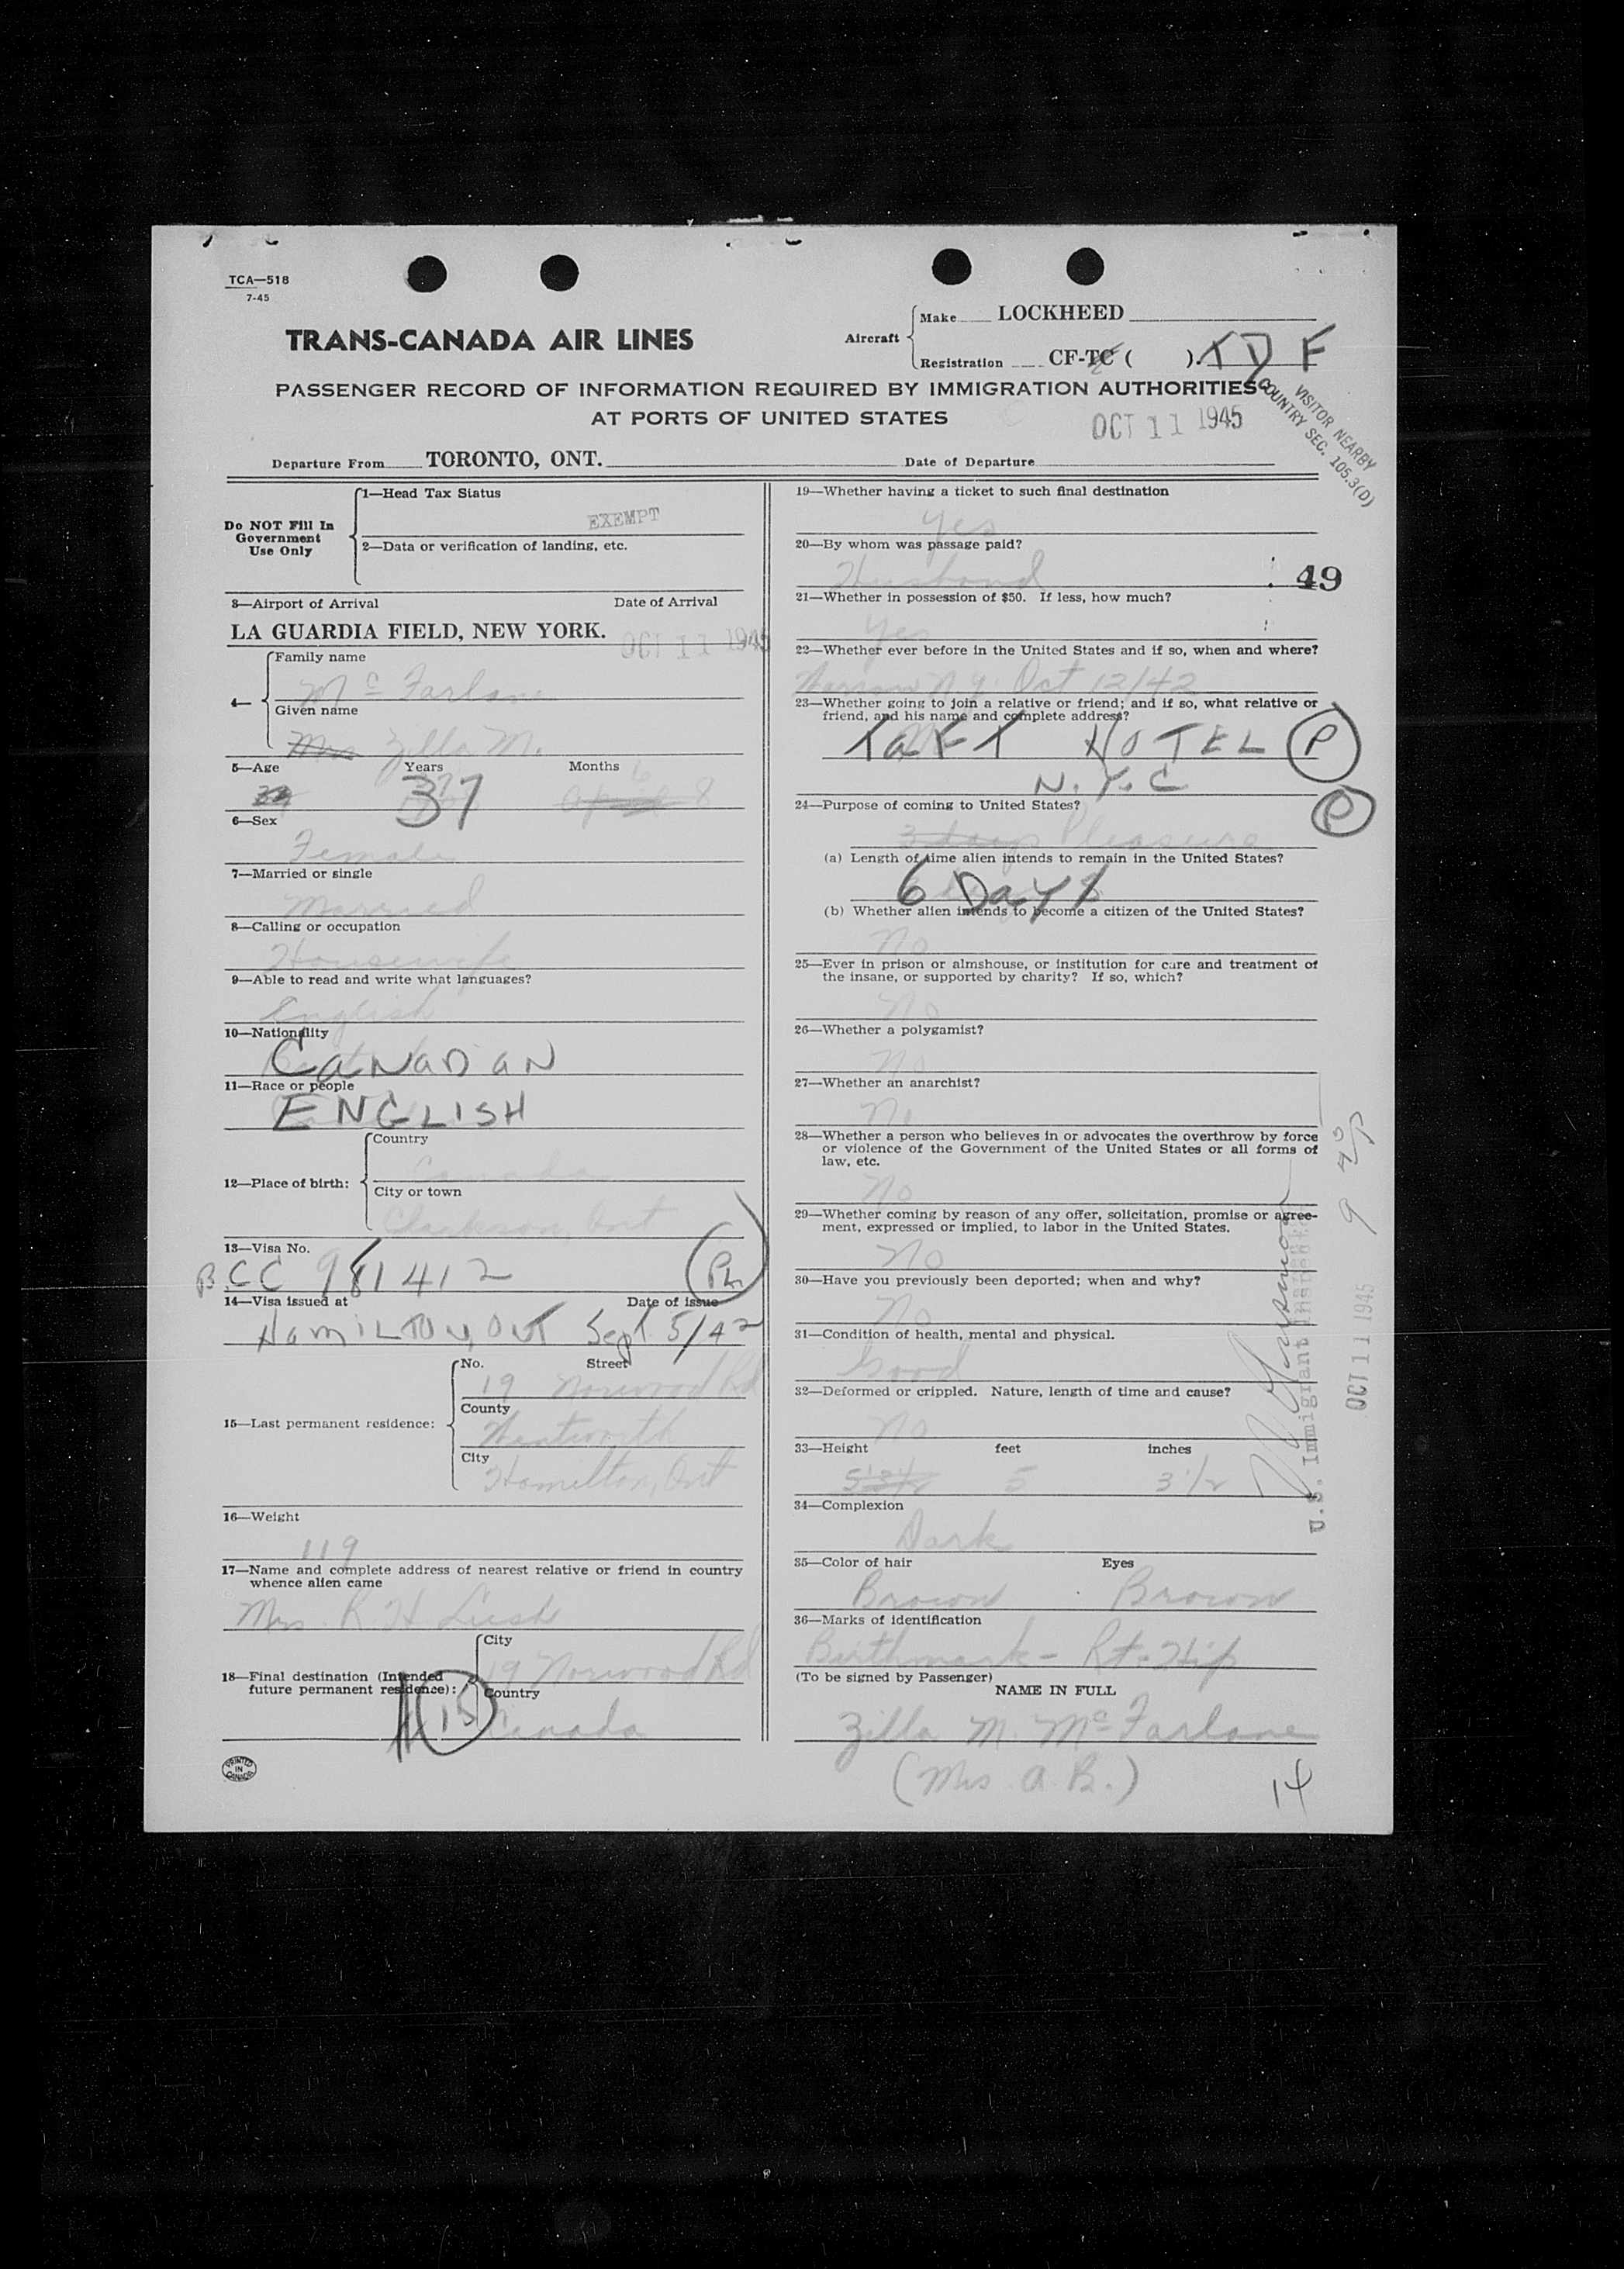 TCA—518
7-45
TRANS-CANADA AIR LINES
Aircraft
Make LOCKHEED
Registration CF-TC ( ). TDF
PASSENGER RECORD OF INFORMATION REQUIRED BY IMMIGRATION AUTHORITIES
AT PORTS OF UNITED STATES
OCT 11 1945
VISITOR NEARBY
COUNTRY SEC. 105.3(D)
Departure From TORONTO, ONT.
Date of Departure
Do NOT Fill In
Government
Use Only
1—Head Tax Status
EXEMPT
2—Data or verification of landing, etc.
3—Airport of Arrival Date of Arrival
LA GUARDIA FIELD, NEW YORK. OCT 11 1945
4—
Family name
McFarlane
Given name
Mrs Zilla M.
5—Age Years Months
37 8
6—Sex
Female
7—Married or single
Married
8—Calling or occupation
Housewife
9—Able to read and write what languages?
English
10—Nationality
CANADIAN
11—Race or people
ENGLISH
12—Place of birth:
Country
Canada
City or town
Clarkson, Ont
13—Visa No.
B.CC 981412
14—Visa issued at Date of issue
HAMILTON, ONT Sept 5/42
15—Last permanent residence:
No. Street
19 Norwood Rd
County
Wentworth
City
Hamilton, Ont
16—Weight
119
17—Name and complete address of nearest relative or friend in country
whence alien came
Mrs. R. H. Lush
18—Final destination (Intended
future permanent residence):
City
19 Norwood Rd
Country
15
Canada
PRINTED
IN
CANADA
19—Whether having a ticket to such final destination
Yes
20—By whom was passage paid?
Husband
49
21—Whether in possession of $50. If less, how much?
Yes
22—Whether ever before in the United States and if so, when and where?
N.Y. Oct 12/42
23—Whether going to join a relative or friend; and if so, what relative or
friend, and his name and complete address?
TAFT HOTEL P
N.Y.C
24—Purpose of coming to United States?
P
3 days Pleasure
(a) Length of time alien intends to remain in the United States?
6 DAYS
(b) Whether alien intends to become a citizen of the United States?
No
25—Ever in prison or almshouse, or institution for care and treatment of
the insane, or supported by charity? If so, which?
No
26—Whether a polygamist?
No
27—Whether an anarchist?
No
28—Whether a person who believes in or advocates the overthrow by force
or violence of the Government of the United States or all forms of
law, etc.
No
29—Whether coming by reason of any offer, solicitation, promise or agree-
ment, expressed or implied, to labor in the United States.
No
30—Have you previously been deported; when and why?
No
31—Condition of health, mental and physical.
Good
32—Deformed or crippled. Nature, length of time and cause?
No
33—Height feet inches
5 3 1/2
34—Complexion
Dark
35—Color of hair Eyes
Brown Brown
36—Marks of identification
Birthmark - Rt. Hip
(To be signed by Passenger)
NAME IN FULL
Zilla M. McFarlane
(Mrs. A. B.)
14
U.S. Immigrant Inspector
OCT 11 1945